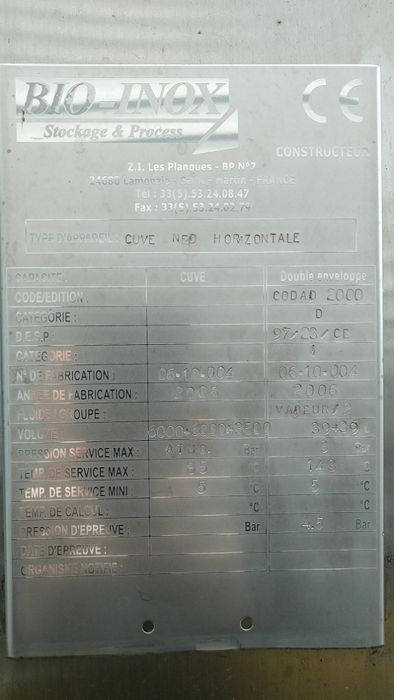 BIO-INOX
Stockage & Process
CE
CONSTRUCTEUR
Z.I. Les Planques - BP N°7
24680 Lamonzie - Saint - Martin - FRANCE
Tél : 33(5).53.24.08.47
Fax : 33(5).53.24.02.79
TYPE D'APPAREIL : CUVE NFD HORIZONTALE
CAPACITE : CUVE Double enveloppe
CODE/EDITION : CODAP 2000
CATEGORIE : D
D.E.S.P : 97/23/CE
CATEGORIE : 1
N° DE FABRICATION : 06-10-004 06-10-004
ANNEE DE FABRICATION : 2006 2006
FLUIDE / GROUPE : VAPEUR/2
VOLUME :
PRESSION SERVICE MAX : ATM. Bar 3 Bar
TEMP. DE SERVICE MAX : °C 143 °C
TEMP. DE SERVICE MINI : 5 °C 5 °C
TEMP. DE CALCUL : °C °C
PRESSION D'EPREUVE : Bar 4.5 Bar
DATE D'EPREUVE :
ORGANISME NOTIFIE :